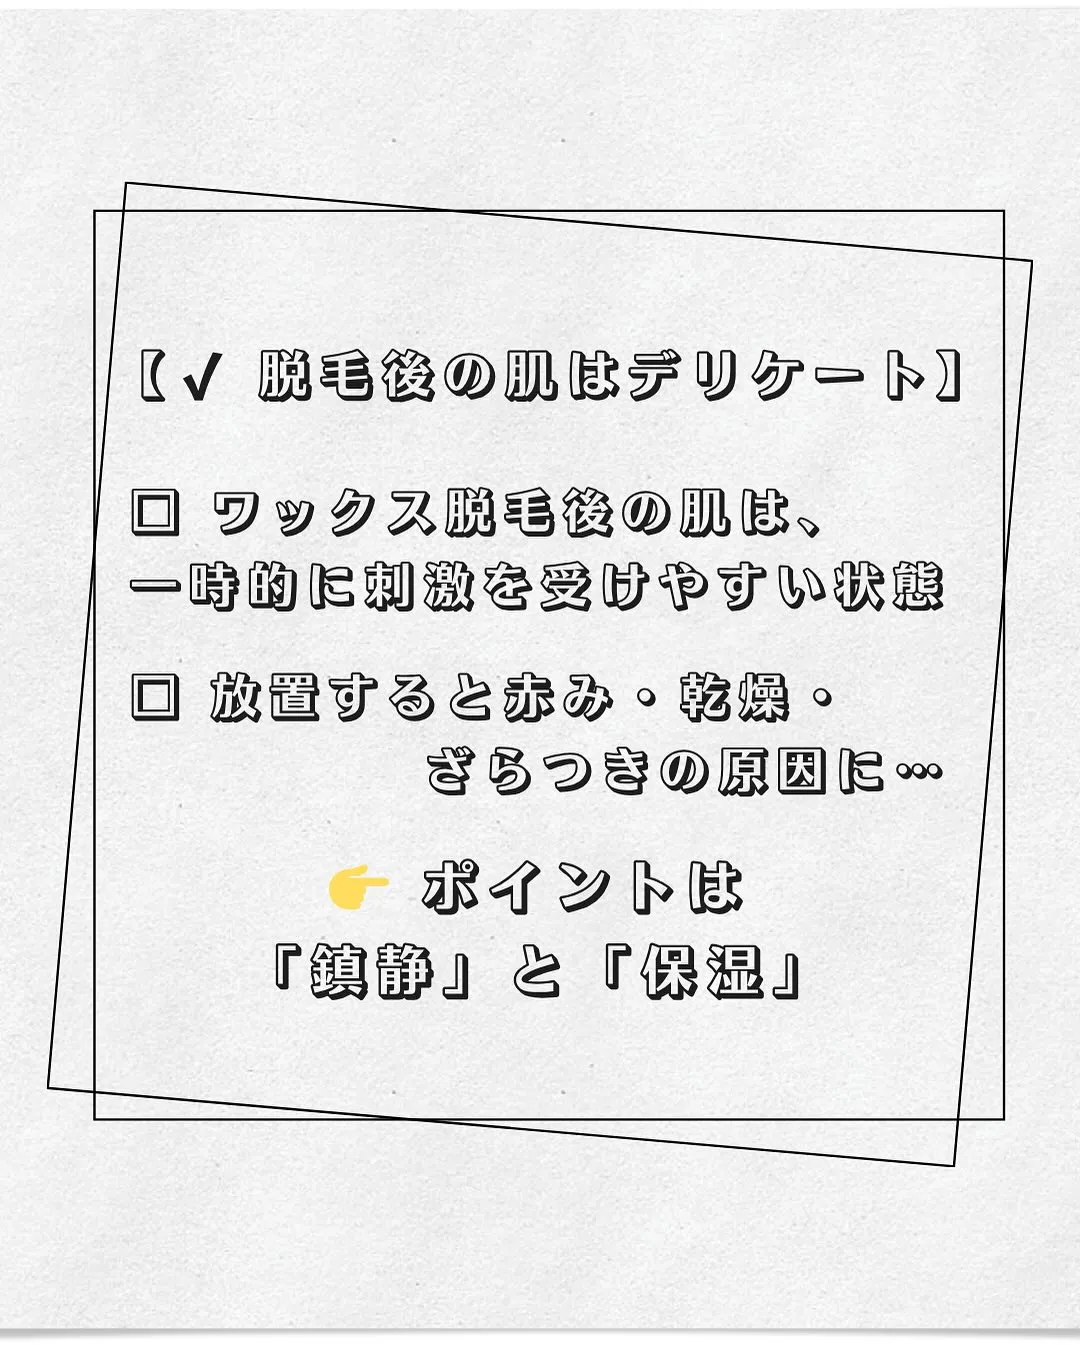 【✓ 脱毛後の肌はデリケート】
□ ワックス脱毛後の肌は、
一時的に刺激を受けやすい状態
□ 放置すると赤み・乾燥・
ざらつきの原因に…
👉 ポイントは
「鎮静」と「保湿」